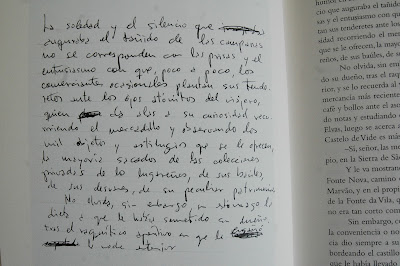 La soledad y el silencio que
auguraba el tañido de las campanas
no se corresponden con las prisas y el
entusiasmo con que, poco a poco, los
comerciantes ocasionales plantan sus tende-
retes ante los ojos atónitos del viajero,
quien da alas a su curiosidad reco-
rriendo el mercadillo y observando los
mil objetos y artilugios que se le ofrecen,
la mayoría sacados de las colecciones
privadas de los lugareños, de sus baúles,
de sus desvanes, de su peculiar patrimonio.
No olvida, sin embargo, su estómago la
dieta a que le había sometido su dueño,
tras el raquítico aperitivo en que le
la noche anterior
lumnos, son
cho que augura
sas y el entusiasmo con que
tan sus tenderetes ante los
que se le ofrecen, la mayo
reños, de sus baúles, de su
No olvida, sin embar
do su dueño, tras el raqu
rior, y se lo recuerda al
mercancía más reciente
café y bollos ante el asom
de notas y estudiando e
Elvas, luego se acerca a
Castelo de Vide es más
–Sí, señor, las me
pio, en la Sierra de São
Y le va mostrand
Fonte Nova, camino d
Marvão, y en el propi
de la Fonte da Vila, qu
no era tan corto como
Sin embargo, co
la conveniencia o no
cio dio siempre a su
bordeando el castillo
que le había llevado